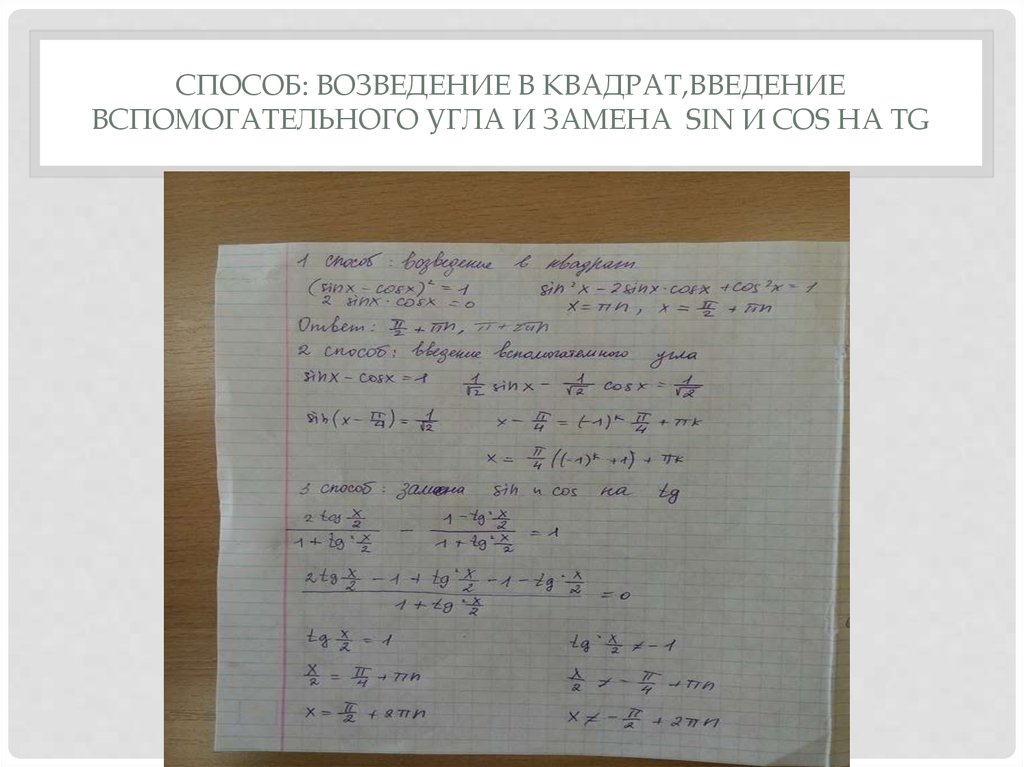 СПОСОБ: ВОЗВЕДЕНИЕ В КВАДРАТ,ВВЕДЕНИЕ
ВСПОМОГАТЕЛЬНОГО УГЛА И ЗАМЕНА SIN И COS НА TG
1 способ: возведение в квадрат
(sinx − cosx)² = 1 sin²x − 2sinx·cosx + cos²x = 1
2 sinx · cosx = 0 x = πn, x = π/2 + πn
Ответ: π/2 + πn, π + 2πn
2 способ: введение вспомогательного угла
sinx − cosx = 1 1/√2 sinx − 1/√2 cosx = 1/√2
sin(x − π/4) = 1/√2 x − π/4 = (−1)ᵏ π/4 + πk
x = π/4 ((−1)ᵏ + 1) + πk
3 способ: замена sin и cos на tg
2tg x/2 / 1 + tg² x/2 − 1 − tg² x/2 / 1 + tg² x/2 = 1
2tg x/2 − 1 + tg² x/2 − 1 − tg² x/2 / 1 + tg² x/2 = 0
tg x/2 = 1 tg² x/2 ≠ −1
x/2 = π/4 + πn x/2 ≠ − π/4 + πn
x = π/2 + 2πn x ≠ − π/2 + 2πn